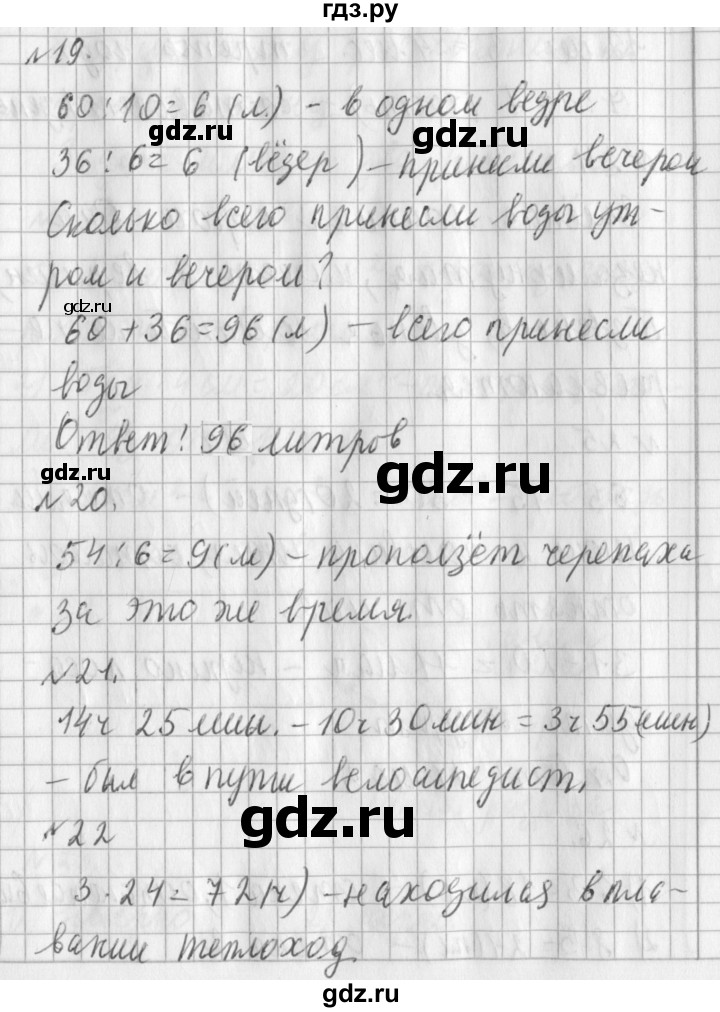 гдз.ру
№19.
60:10=6(л.) - в одном ведре
gdz.ru gdz.ru
36:6=6 (вёдер) - принесли вечером
Сколько всего принесли воды ут-
ром и вечером?
gdz.ru
60+36=96(л) - всего принесли
воды
Ответ: 96 литров
gdz.ru gdz.ru
№20.
54:6=9(м) - проползёт черепаха
за это же время.
№21.
14ч 25мин. - 10ч 30мин = 3ч 55(мин)
- был в пути велосипедист.
gdz.ru
№22
3·24=72(ч) - находился в пла-
вании теплоход.
gdz.ru
gdz.ru